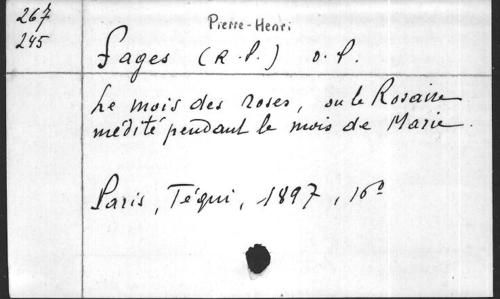 267
245
Pierre-Henri
Fages (R.P.) O.P.
Le mois des roses, ou le Rosaire
médité pendant le mois de Marie.
Paris, Téqui, 1897, 16°